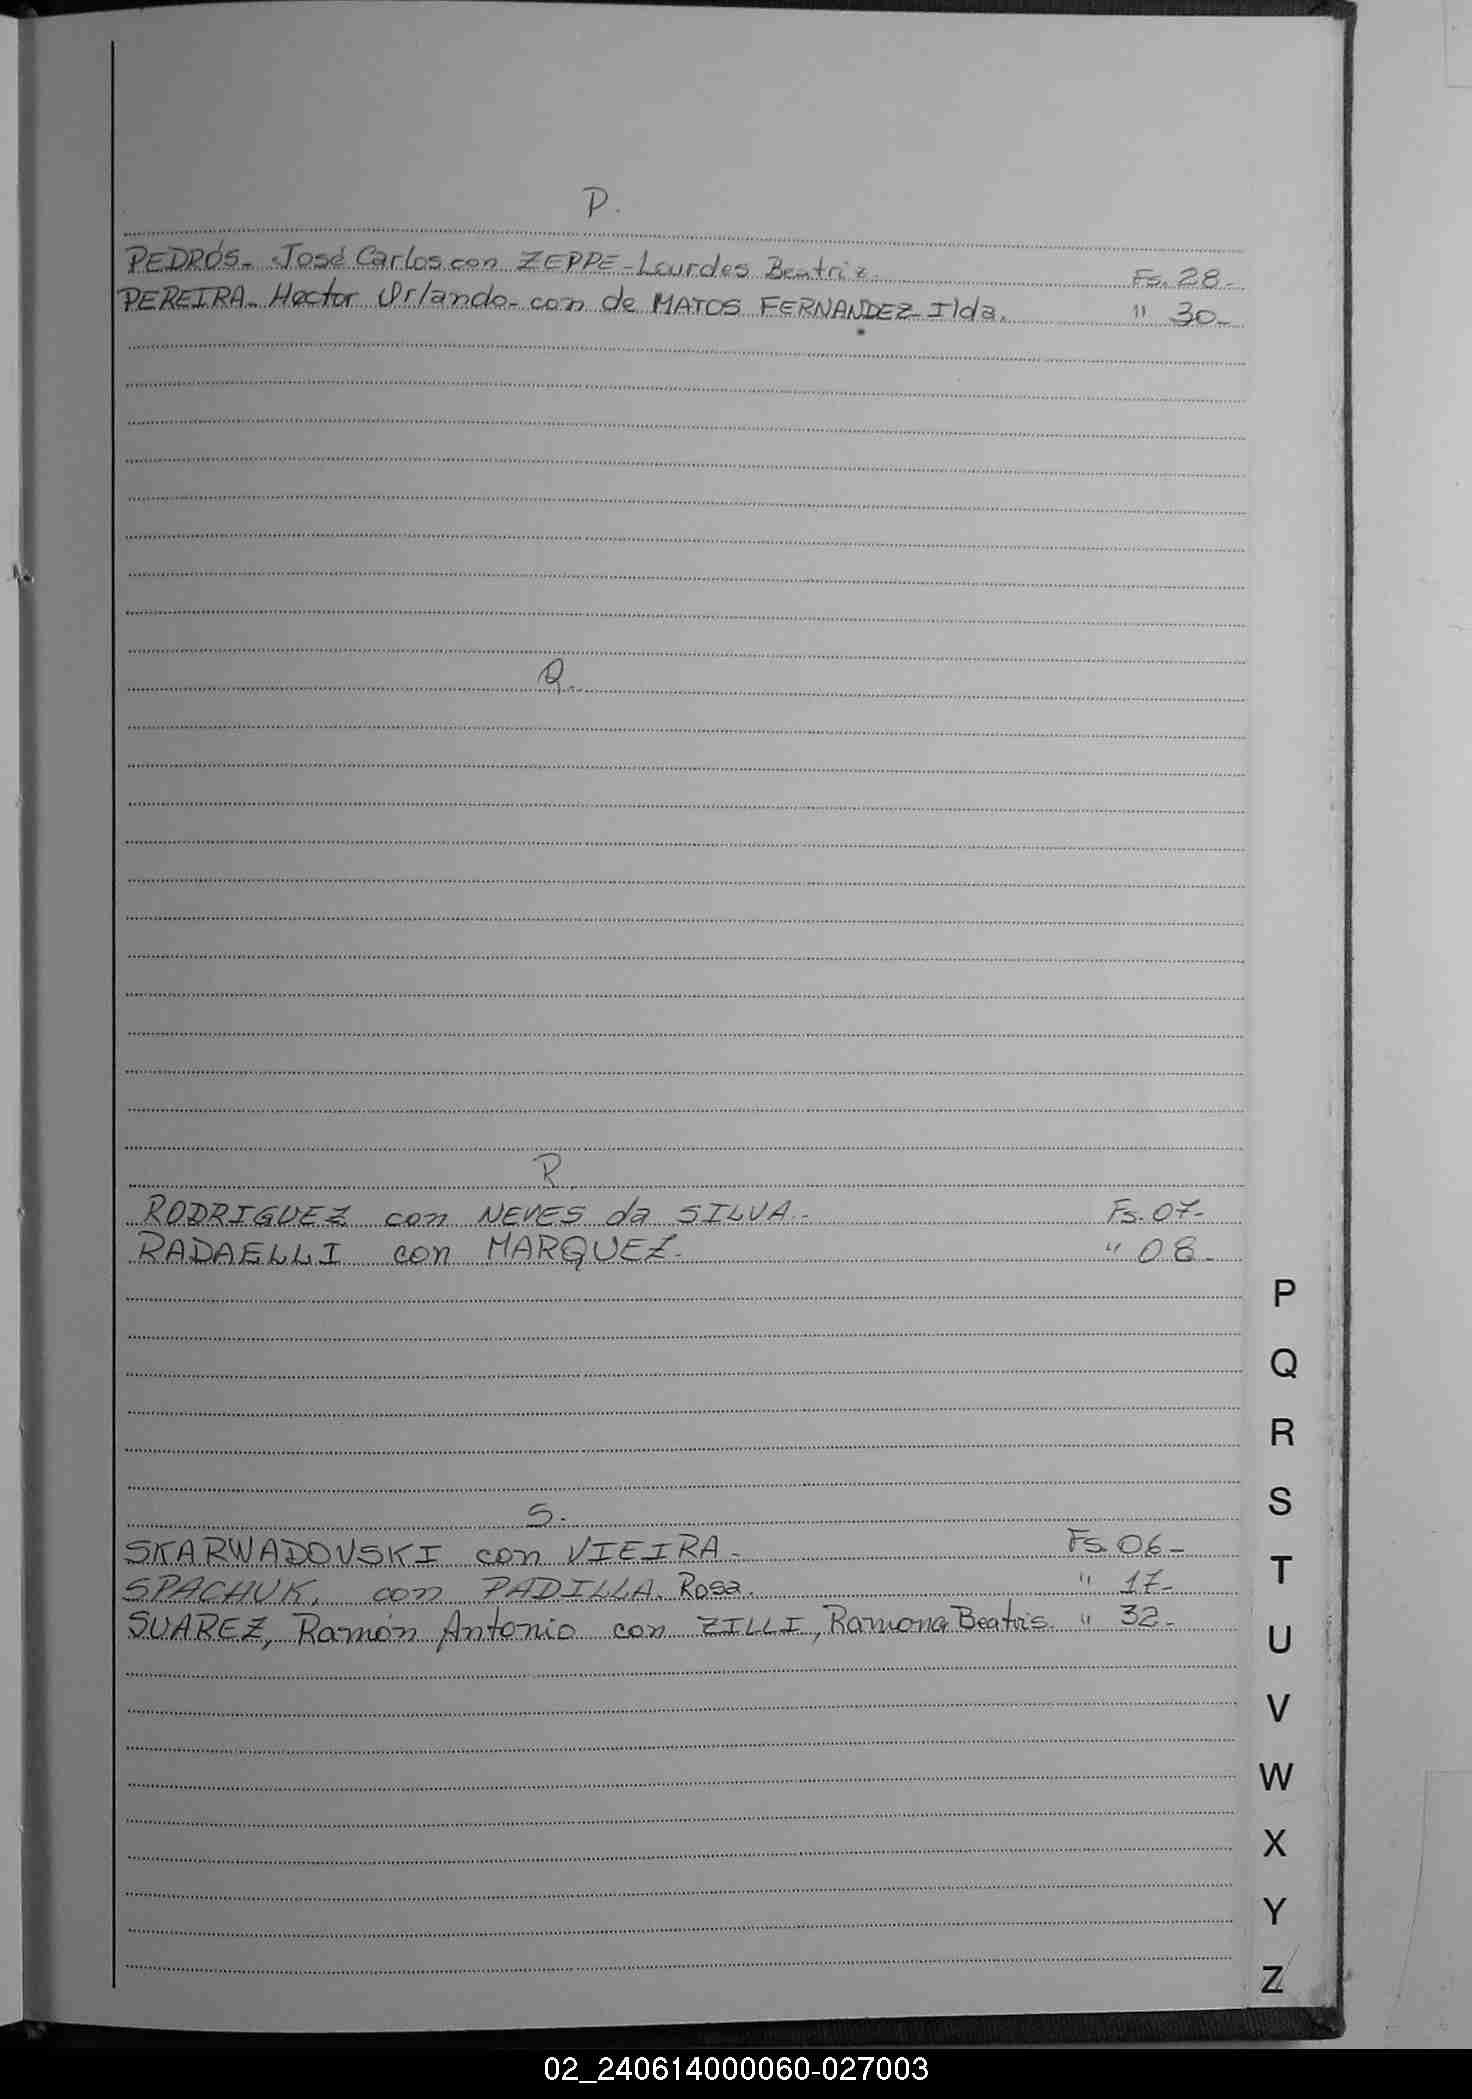 P.
PEDRÓS- José Carlos con ZEPPE-Lourdes Beatriz. Fs. 28-
PEREIRA- Hector Orlando- con de MATOS FERNANDEZ- Ilda. " 30-
Q.
R.
RODRIGUEZ con NEVES da SILVA.- Fs. 07-
RADAELLI con MARQUEZ.- " 08-
S.
SKARWADOVSKI con VIEIRA.- Fs. 06-
SPACHUK, con PADILLA. Rosa. " 17-
SUAREZ, Ramón Antonio con ZILLI, Ramona Beatris. " 32-
P
Q
R
S
T
U
V
W
X
Y
Z
02_240614000060-027003